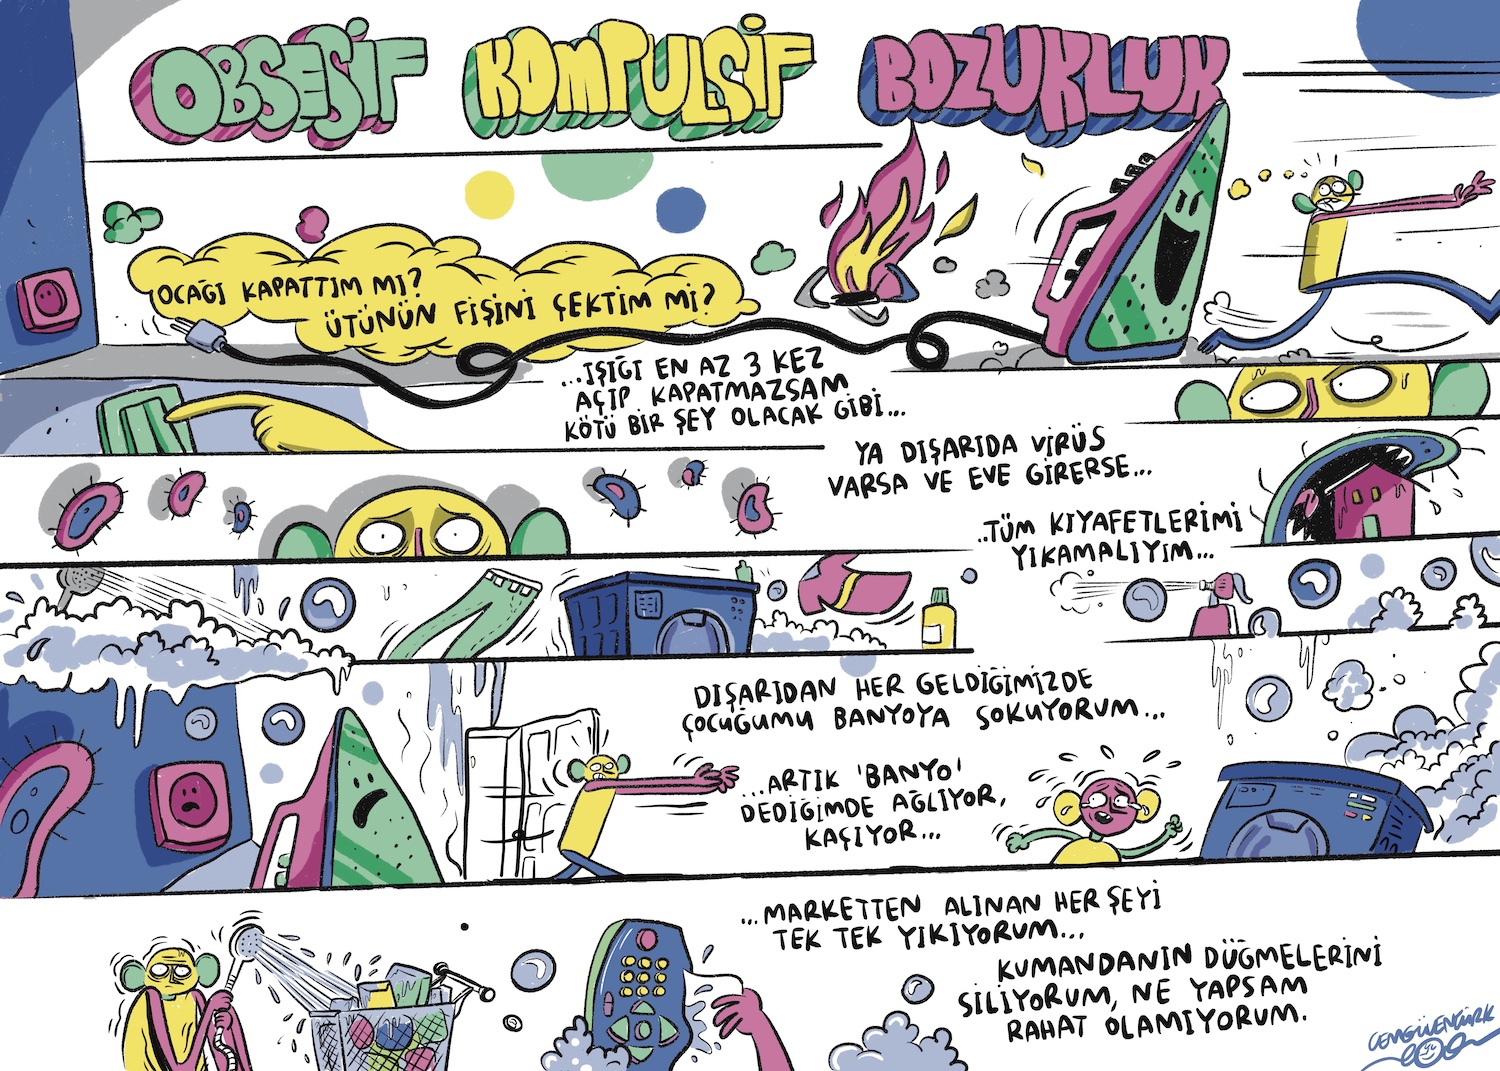 OBSESİF KOMPULSİF BOZUKLUK
OCAĞI KAPATTIM MI?
ÜTÜNÜN FİŞİNİ ÇEKTİM Mİ?
...IŞIĞI EN AZ 3 KEZ
AÇIP KAPATMAZSAM
KÖTÜ BİR ŞEY OLACAK GİBİ...
YA DIŞARIDA VİRÜS
VARSA VE EVE GİRERSE...
..TÜM KIYAFETLERİMİ
YIKAMALIYIM...
DIŞARIDAN HER GELDİĞİMİZDE
ÇOCUĞUMU BANYOYA SOKUYORUM...
...ARTIK 'BANYO'
DEDİĞİMDE AĞLIYOR,
KAÇIYOR...
...MARKETTEN ALINAN HER ŞEYİ
TEK TEK YIKIYORUM...
KUMANDANIN DÜĞMELERİNİ
SİLİYORUM, NE YAPSAM
RAHAT OLAMIYORUM.
CEMGÜVENTÜRK